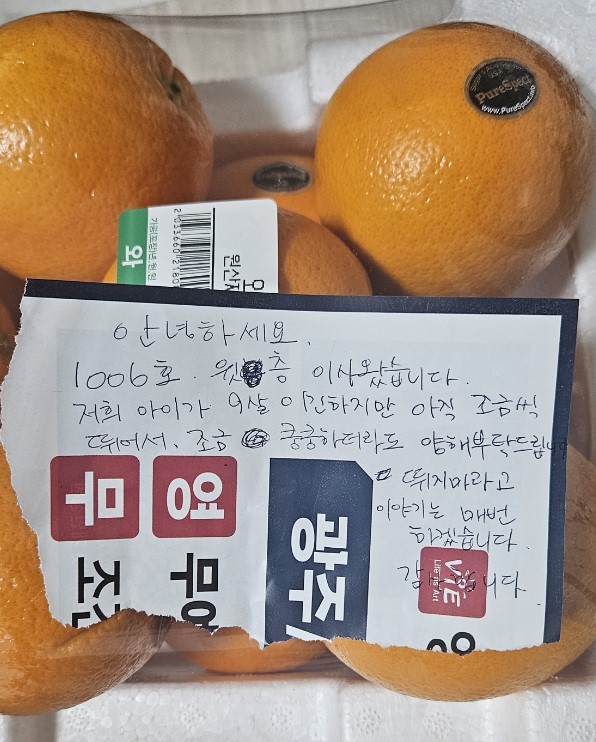 PureSpect
www.PureSpect.
와
안녕하세요.
1006호. 윗 층 이사왔습니다.
저희 아이가 9살 이긴하지만 아직 조금씩
뛰어서. 조금 쿵쿵하더라도 양해부탁드립니
뛰지마라고
이야기는 매번
하겠습니다.
감 니다.
무
영
광주
무
조
VIE
Life is Art